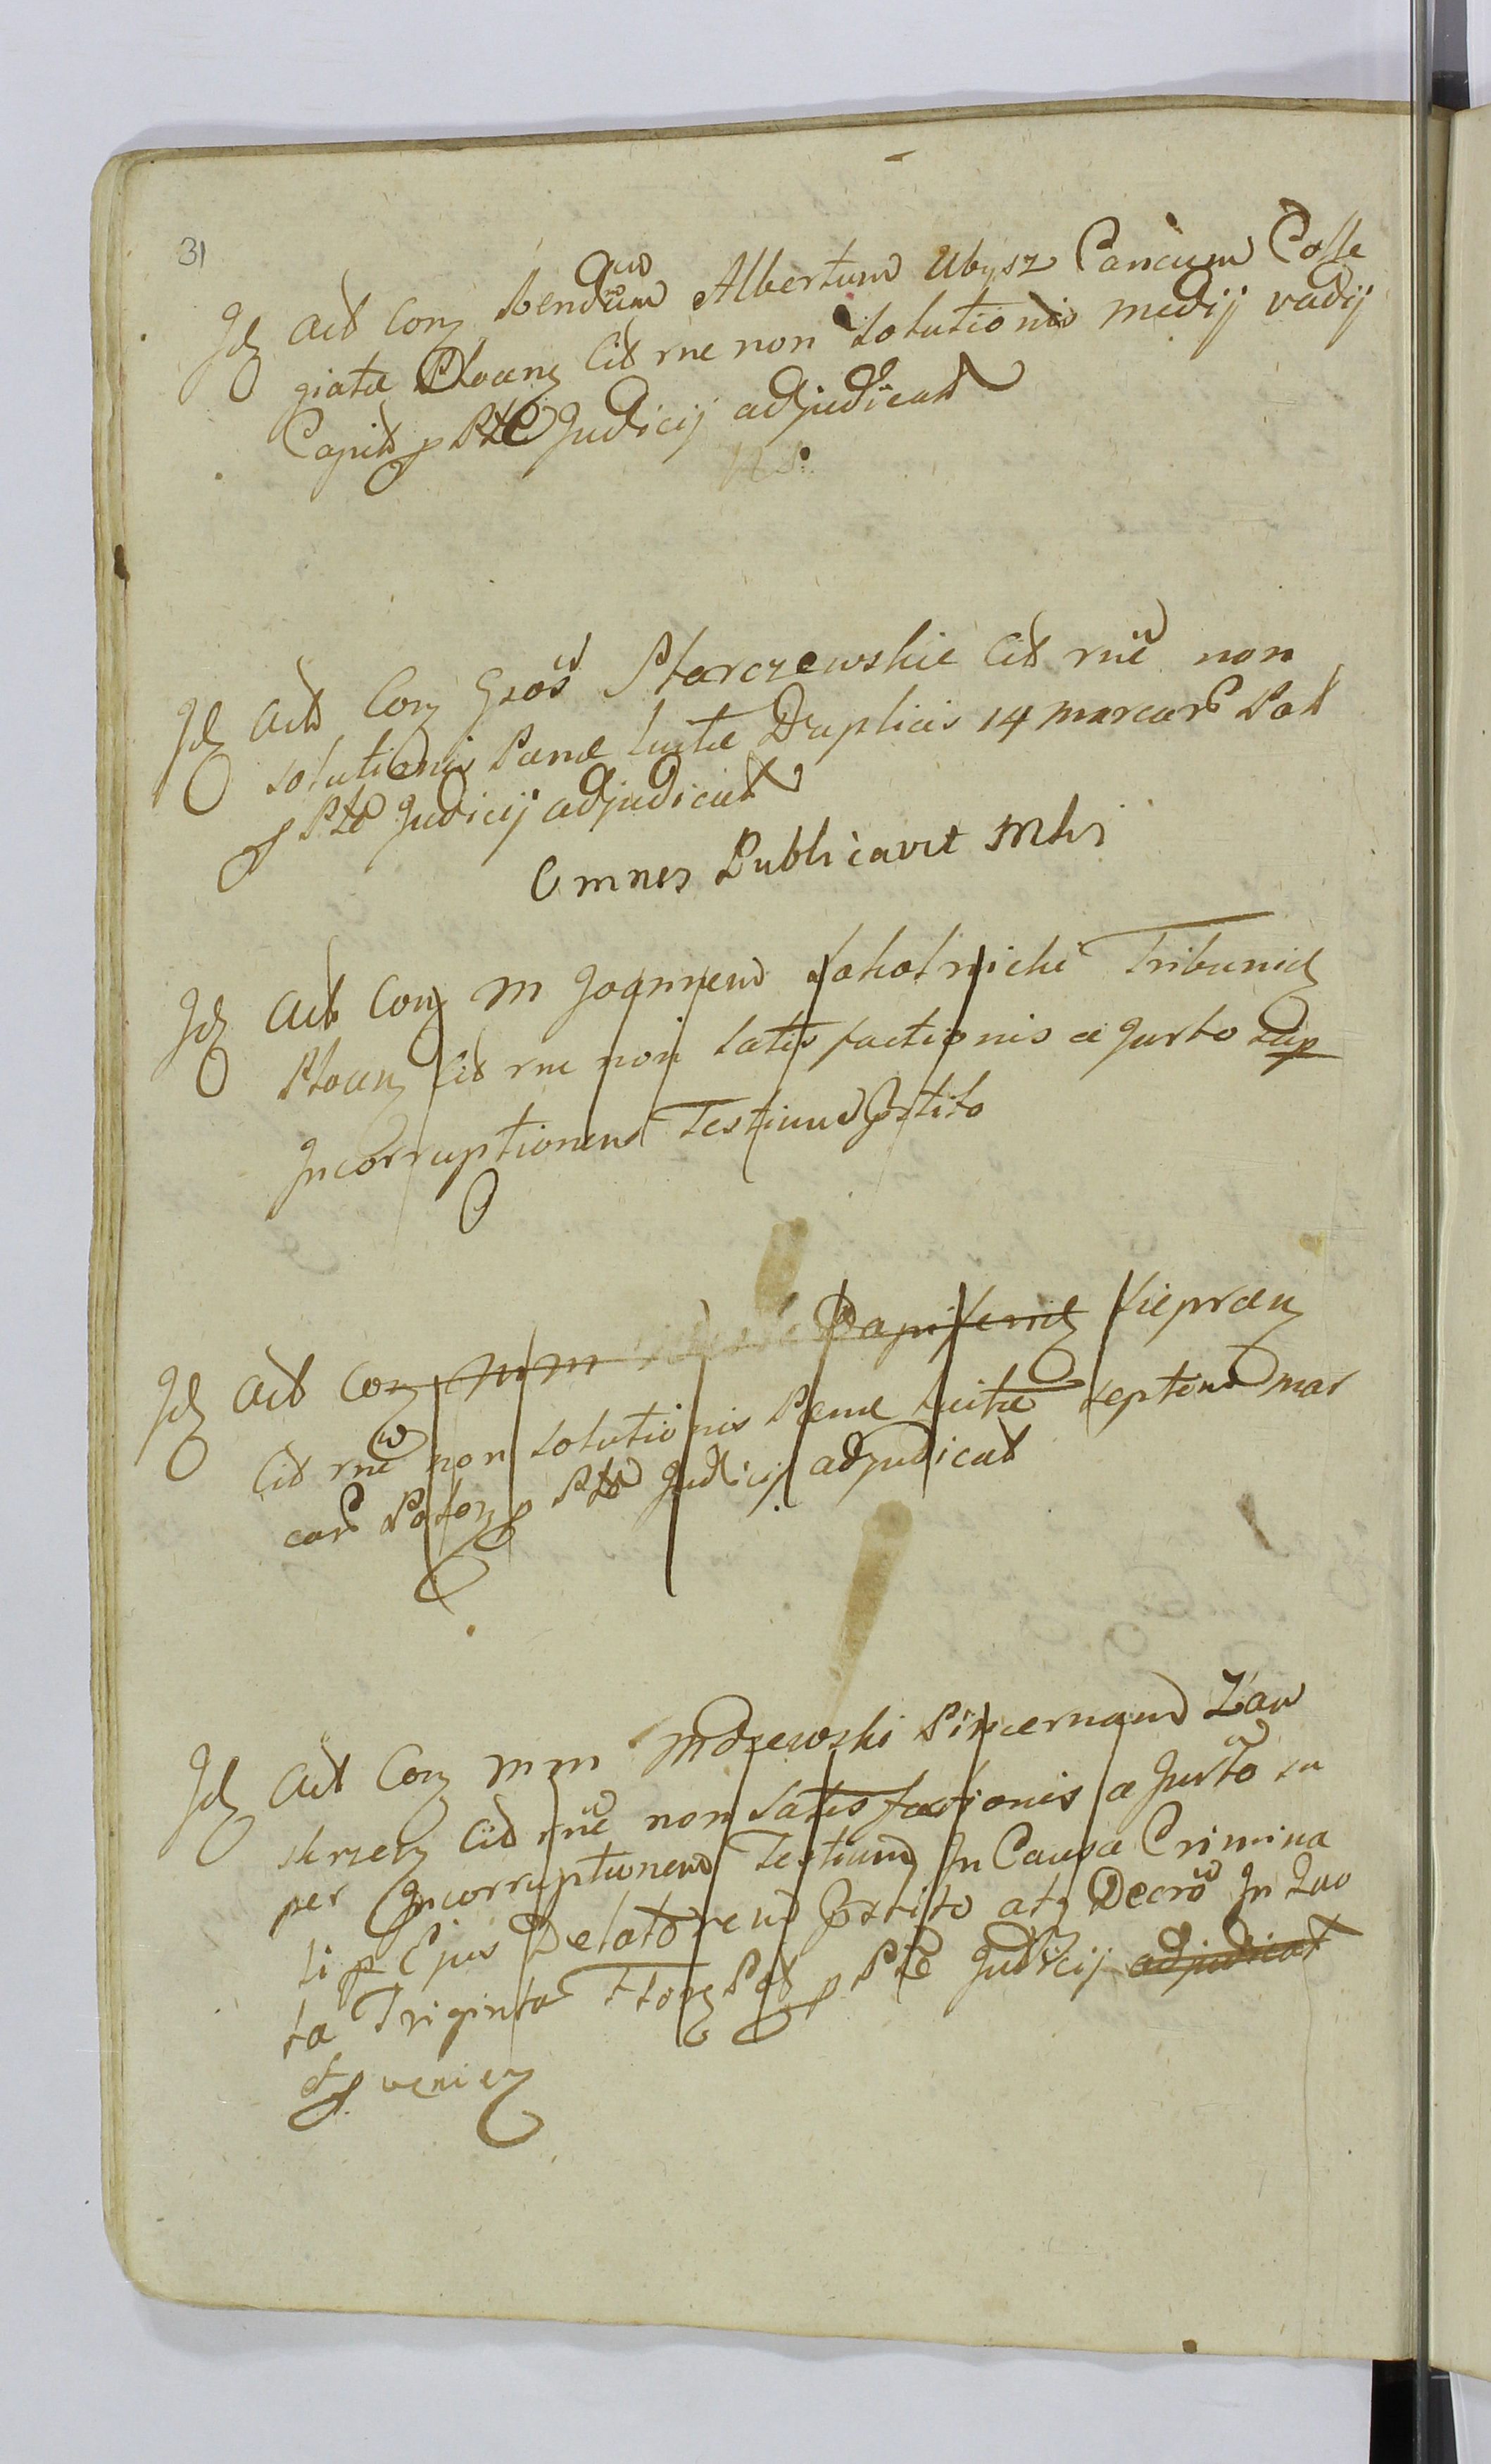 31
Id Act Con Rendum Albertum Ubysz Cancum Colle
giata Plocen Cit rne non Solutionis medij vadij
Capit p Pte Judicij adjudicat
NS:
Id Act Con Gsos Starczewskie Cit rne non
solutionis Pene luite Duplicis 14 marcar Pol
p Pte Judicij adjudicat
Omnes Publicavit Mhi
Id Act Con M Joannem Sokolnicki Tribunid
Plocen Cit rne non Satisfactionis a Jurto sup
Incorruptionem Testium Pstito
Id Act Con MM Dapiferid Sieprcen
Cit rne non Solutionis Pene luite septem mar
car Polon p Pte Judicij adjudicat
Id Act Con MM Mdzewski Pincernam Zaw
skrzen Cit rne non Satisfactionis a Jurto su
per Incorruptionem Testium In Causa Crimina
li p Ejus Delatorem Pstito atq Decro In Luo
ta Triginta Flor Pol p Pte Judicij adjudicat
et p venien